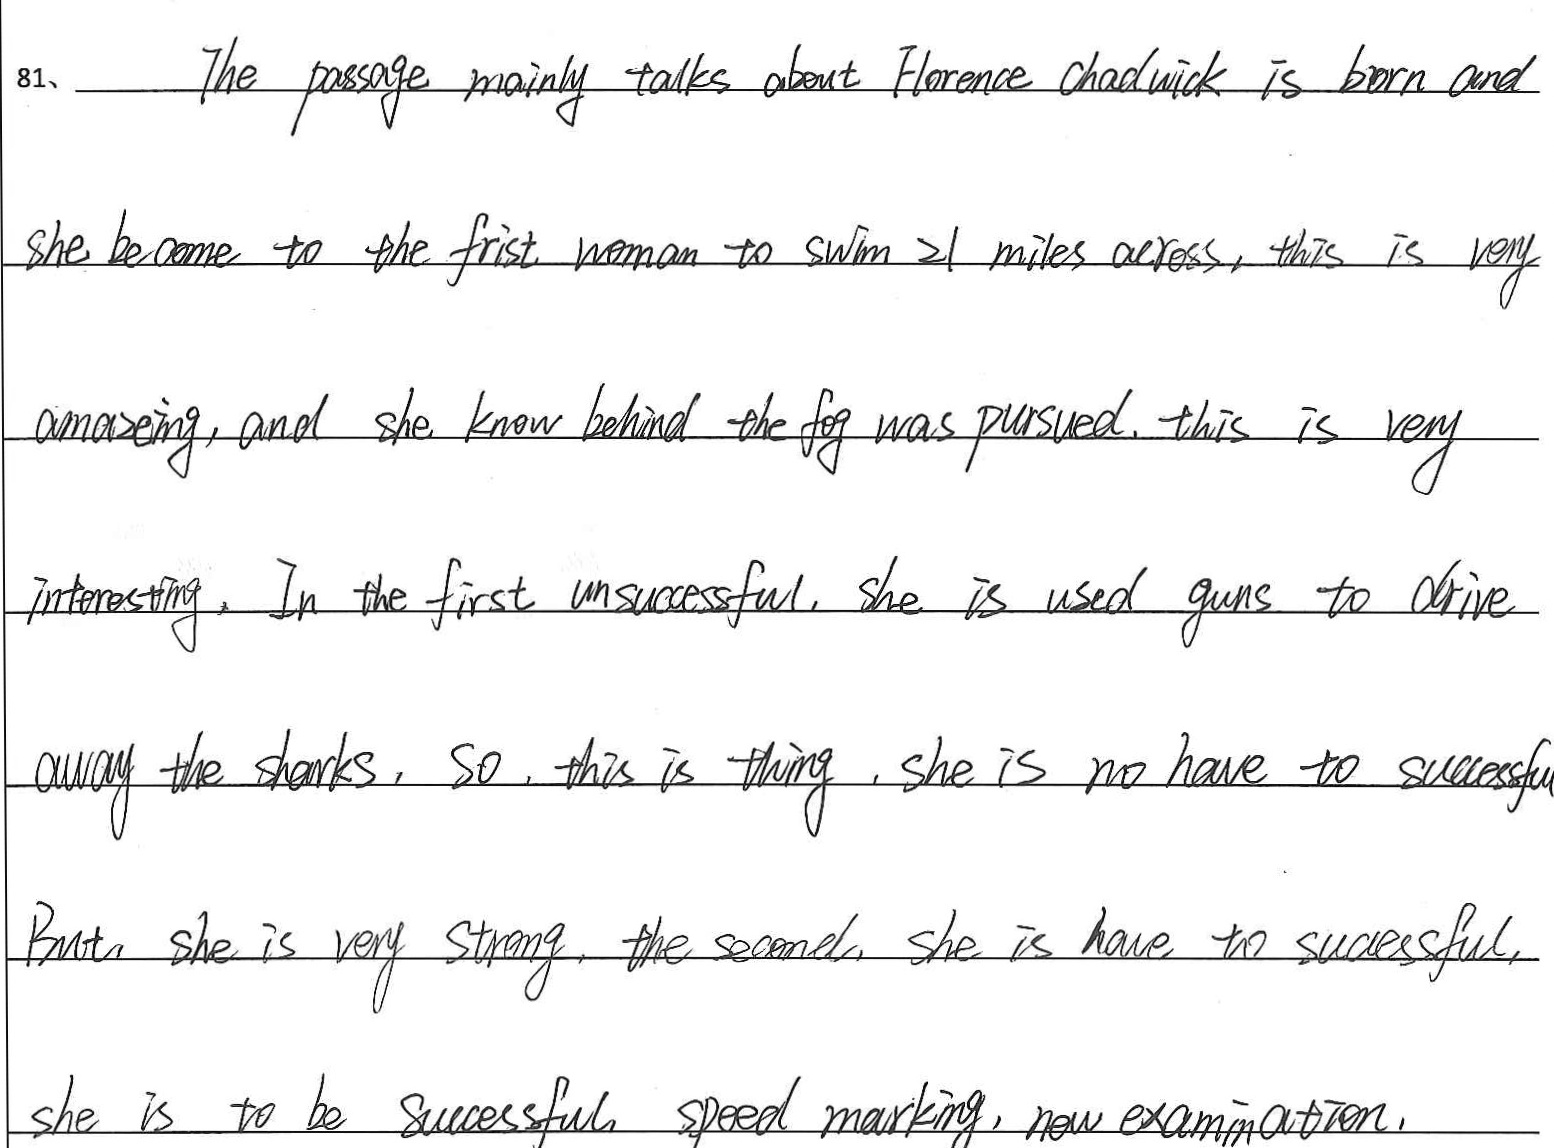 81、 The passage mainly talks about Florence Chadwick is born and
she become to the frist woman to swim 21 miles across, this is very
amazeing, and she know behind the fog was pursued. this is very
interesting. In the first unsuccessful. she is used guns to drive
away the sharks. So, this is thing, she is no have to successful
But, she is very strong, the second, she is have to successful,
she is to be successful, speed marking, new examination.